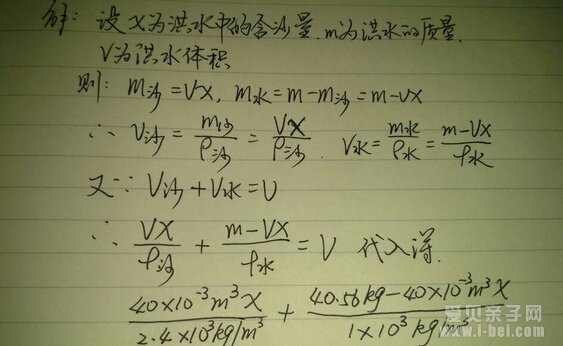 解: 设X为洪水中的含沙量. m为洪水的质量.
V为洪水体积
则: m沙=VX. m水=m-m沙=m-VX
∴ V沙=m沙/ρ沙=VX/ρ沙. V水=m水/ρ水=(m-VX)/ρ水
又∵ V沙+V水=V
∴ VX/ρ沙 + (m-VX)/ρ水 = V 代入得.
(40×10⁻³m³X)/(2.4×10³kg/m³) + (40.56kg-40×10⁻³m³X)/(1×10³kg/m³)
爱贝亲子网
www.i-bei.com